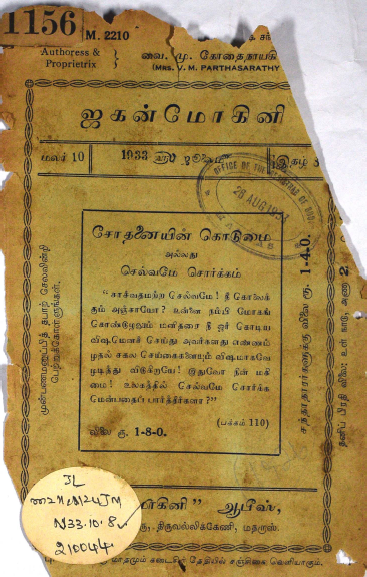 1156
M. 2210
Authoress &
Proprietrix
வை. மு. கோதைநாயகி
(MRS. V. M. PARTHASARATHY
ஜகன்மோகினி
மலர் 10
1933 ௵ ஜூலை
இதழ் 8
OFFICE OF THE REGISTRAR OF BOO
26 AUG 1933
சோதனையின் கொடுமை
அல்லது
செல்வமே சொர்க்கம்
“சாச்வதமற்ற செல்வமே! நீ கொலைக்
கும் அஞ்சாயோ? உன்னை நம்பி மோகங்
கொண்டுழலும் மனிதரை நீ ஓர் கொடிய
விஷமெனச் செய்து அவர்களது எண்ணம்
முதல் சகல செய்கைகளையும் விஷமாகவே
முடித்து விடுகிறாயே! இதுவோ நின் மகி
மை! உலகத்தில் செல்வமே சொர்க்க
மென்பதைப் பார்த்தீர்களா?”
(பக்கம் 110)
விலை ரூ. 1-8-0.
முன்பணமனுப்பித் தபாற் செலவின்றி
பெற்றுக்கொள்ளுங்கள்.
சந்தாதாரர்களுக்கு விலை ரூ 1-4-0.
தனிப் பிரதி விலை: உள் நாடு, அணா 2
கினி” ஆபீஸ்,
திருவல்லிக்கேணி, மதராஸ்.
மாதமும் கடைசித் தேதியில் சஞ்சிகை வெளியாகும்.
JL
N33.10.8
210044